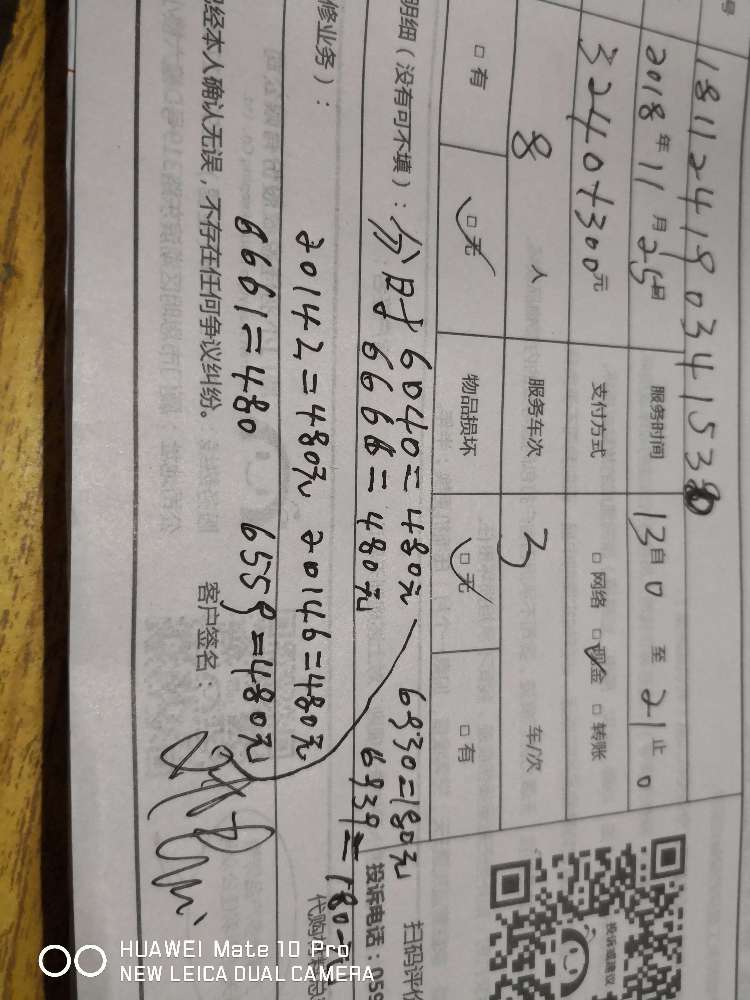 号 181124190341538
2018年11月25日 服务时间 13自0 至 21止0
3240+300元 支付方式 □网络 □现金 □转账
8 人 服务车次 3 车/次
□有 □无 物品损坏 □无 □有
扫码评价
投诉或建议
明细（没有可不填）： 分时 6040=480元 6830=180元
6668=480元 6839=180元
投诉电话：059
修业务）： 20142=480元 20146=480元
代购
6661=480 6559=480元
经本人确认无误，不存在任何争议纠纷。 客户签名：
HUAWEI Mate 10 Pro
NEW LEICA DUAL CAMERA